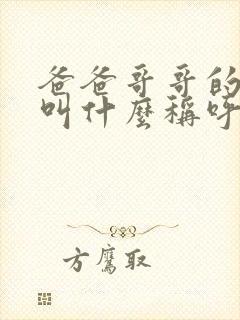 爸爸哥哥的
叫什麼稱呼
方鷹取